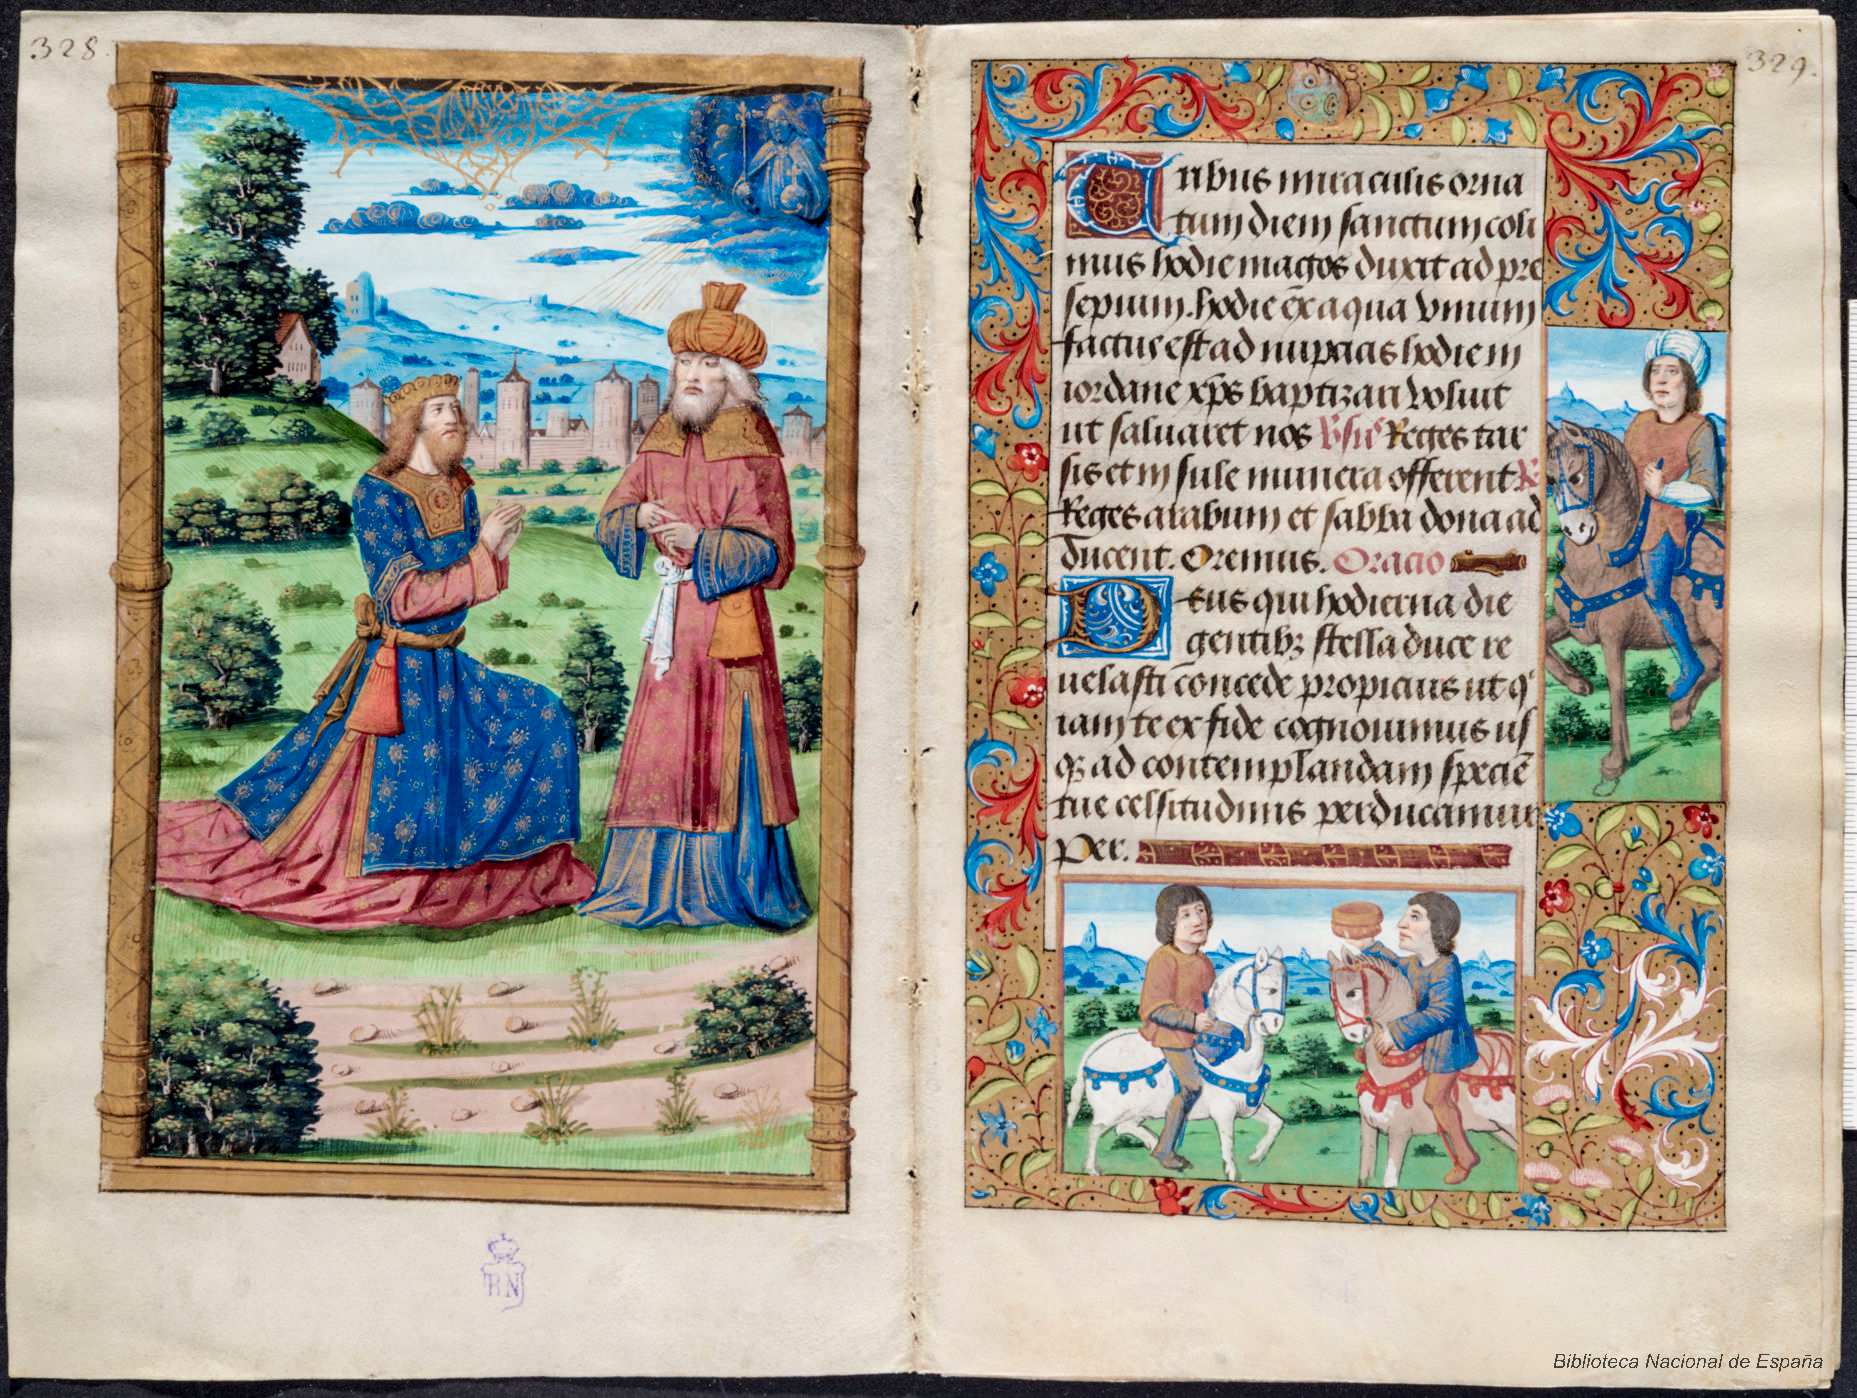 328.
329.
Tribus miraculis orna
tum diem sanctum coli
mus hodie magos duxit ad pre
sepium. hodie ex aqua vinum
factum est ad nupcias hodie in
iordane xp̄s baptizari voluit
ut saluaret nos Reges tar
sis et insule munera offerent R
Reges arabum et sabba dona ad
ducent. Oremus. Oracio
Deus qui hodierna die
gentibꝫ stella duce re
uelasti cōncede propicius ut q
iam te ex fide cognouimus us
qꝫ ad contemplandam speciē
tue celsitudinis perducamur
Per.
BN
Biblioteca Nacional de España